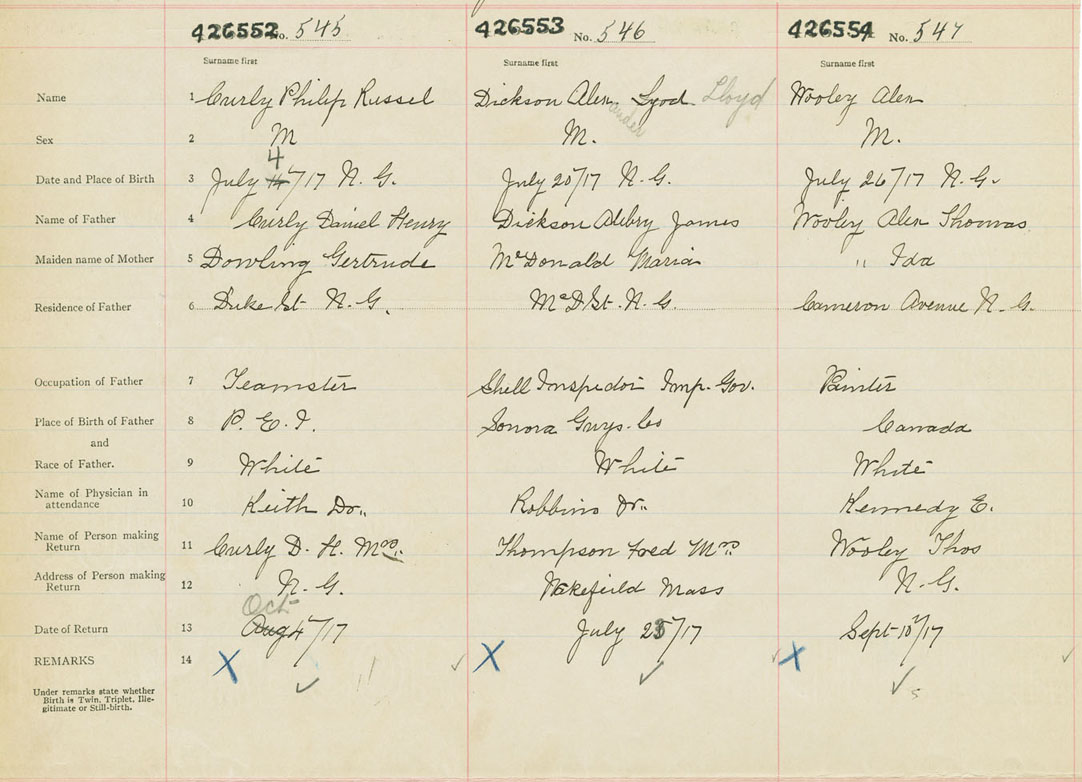 426552 No. 545 426553 No. 546 426554 No. 547
Surname first Surname first Surname first
Name 1 Curly Philip Russel Dickson Alexander Lyod Lloyd Wooley Alex
Sex 2 M M. M.
4
Date and Place of Birth 3 July 14/17 N. G. July 20/17 N. G. July 26/17 N. G.
Name of Father 4 Curly Daniel Henry Dickson Albry James Wooley Alex Thomas
Maiden name of Mother 5 Dowling Gertrude McDonald Maria " Ida
Residence of Father 6 Duke St N. G. McD St. N. G. Cameron Avenue N. G.
Occupation of Father 7 Teamster Shell Inspector Imp. Gov. Painter
Place of Birth of Father 8 P. E. I. Sonora Guys. Co Canada
and
Race of Father. 9 White White White
Name of Physician in
attendance 10 Keith Dr. Robbins Dr. Kennedy E.
Name of Person making
Return 11 Curly D. H. Mrs. Thompson Fred Mrs Wooley Thos
Address of Person making
Return 12 N. G. Wakefield Mass N. G.
Oct
Date of Return 13 Aug 4/17 July 25/17 Sept 10/17
REMARKS 14 X X X
Under remarks state whether
Birth is Twin, Triplet, Ille-
gitimate or Still-birth.